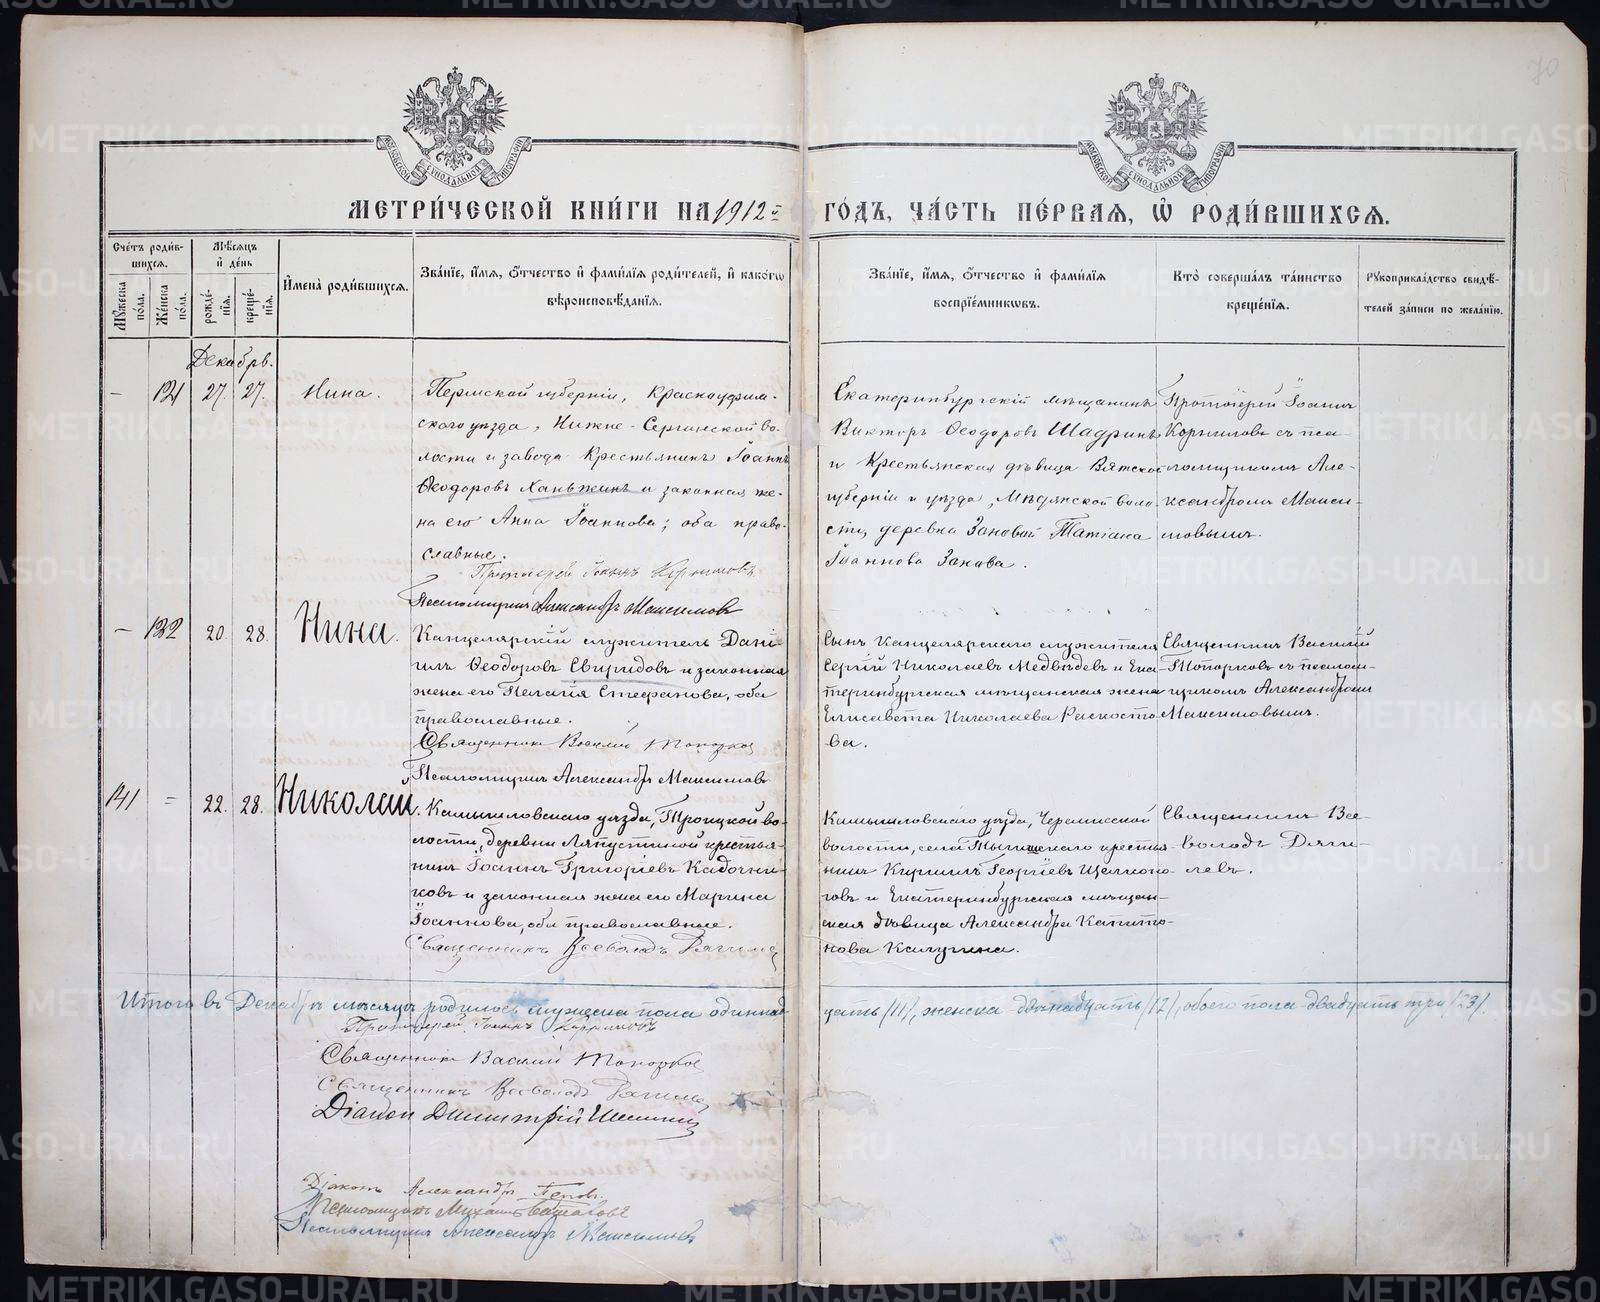 70
МОСКОВСКОЙ СѴНОДАЛЬНОЙ ТИПОГРАФІИ
МОСКОВСКОЙ СѴНОДАЛЬНОЙ ТИПОГРАФІИ
МЕТРИ́ЧЕСКОЙ КНИ́ГИ НА 1912 й ГО́ДЪ, ЧА́СТЬ ПЕ́РВАЯ, Ѡ҆ РОДИ́ВШИХСЯ.
Сче́тъ роди́в-
шихся.
Мѣ́сяцъ
и҆ де́нь
Мꙋ́жеска по́ла.
Же́нска по́ла.
рожде́-
нїя.
креще́-
нїя.
И҆мена̀ роди́вшихся.
Зва́нїе, и҆́мя, о҆́тчество и҆ фами́лїя роди́телей, и҆ како́гѡ
вѣроисповѣ́данїя.
Зва́нїе, и҆́мя, о҆́тчество и҆ фами́лїя
воспрїе́мникѡвъ.
Кто̀ соверша́лъ та́инство
креще́нїя.
Рꙋкоприкла́дство свидѣ́-
телей за́писи по жела́нїю.
Декабрь.
– 131 27. 27. Нина.
Пермской губерніи, Красноуфим-
скаго уѣзда, Нижне-Сергинской во-
лости и завода крестьянинъ Іоаннъ
Ѳеодоровъ Ханьжинъ и законная же-
на его Анна Іоаннова; оба право-
славные.
Протоіерей Іоаннъ Корниловъ
Псаломщикъ Александръ Максимовъ
Екатеринбургскій мѣщанинъ
Викторъ Ѳеодоровъ Шадринъ
и крестьянская дѣвица Вятской
губерніи и уѣзда, Мѣдянской воло
сти, деревни Заковой Татіана
Іоаннова Закова.
Протоіерей Іоаннъ
Корниловъ съ пса-
ломщикомъ Але-
ксандромъ Макси-
мовымъ.
– 132 20. 28. Нина.
Канцелярскій служитель Дані-
илъ Ѳеодоровъ Свиридовъ и законная
жена его Пелагія Стефанова, оба
православные.
Священникъ Василій Топорков
Псаломщикъ Александръ Максимовъ
Сынъ канцелярскаго служителя
Сергій Николаевъ Медвѣдевъ и Ека-
теринбургская мѣщанская жена
Елисавета Николаева Раскосто-
ва.
Священникъ Василій
Топорковъ съ псалом-
щикомъ Александромъ
Максимовымъ.
141 = 22. 28. Николай.
Камышловскаго уѣзда, Троицкой во-
лости, деревни Ляпустиной крестья-
нинъ Іоаннъ Григоріевъ Кадочни-
ковъ и законная жена его Марина
Іоаннова, оба православные.
Священникъ Всеволодъ Дягилев
Камышловскаго уѣзда, Черемисской
волости, села Тыгишскаго крестья-
нинъ Кириллъ Георгіевъ Щелконо-
говъ и Екатеринбургская мѣщан-
ская дѣвица Александра Капито-
нова Калугина.
Священникъ Все-
володъ Дяги-
левъ.
Итого въ Декабрѣ мѣсяцѣ родилось мужеска пола одиннад
цать /11/, женска двѣнадцать /12/, обоего пола двадцать три /23/.
Протоіерей Іоаннъ Корниловъ
Священникъ Василій Топорков
Священникъ Всеволодъ Дягилев
Діакон Димитрій
Діаконъ Александръ Попов.
Псаломщикъ Михаилъ
Псаломщикъ Александръ Максимовъ
METRIKI.GASO-URAL.RU